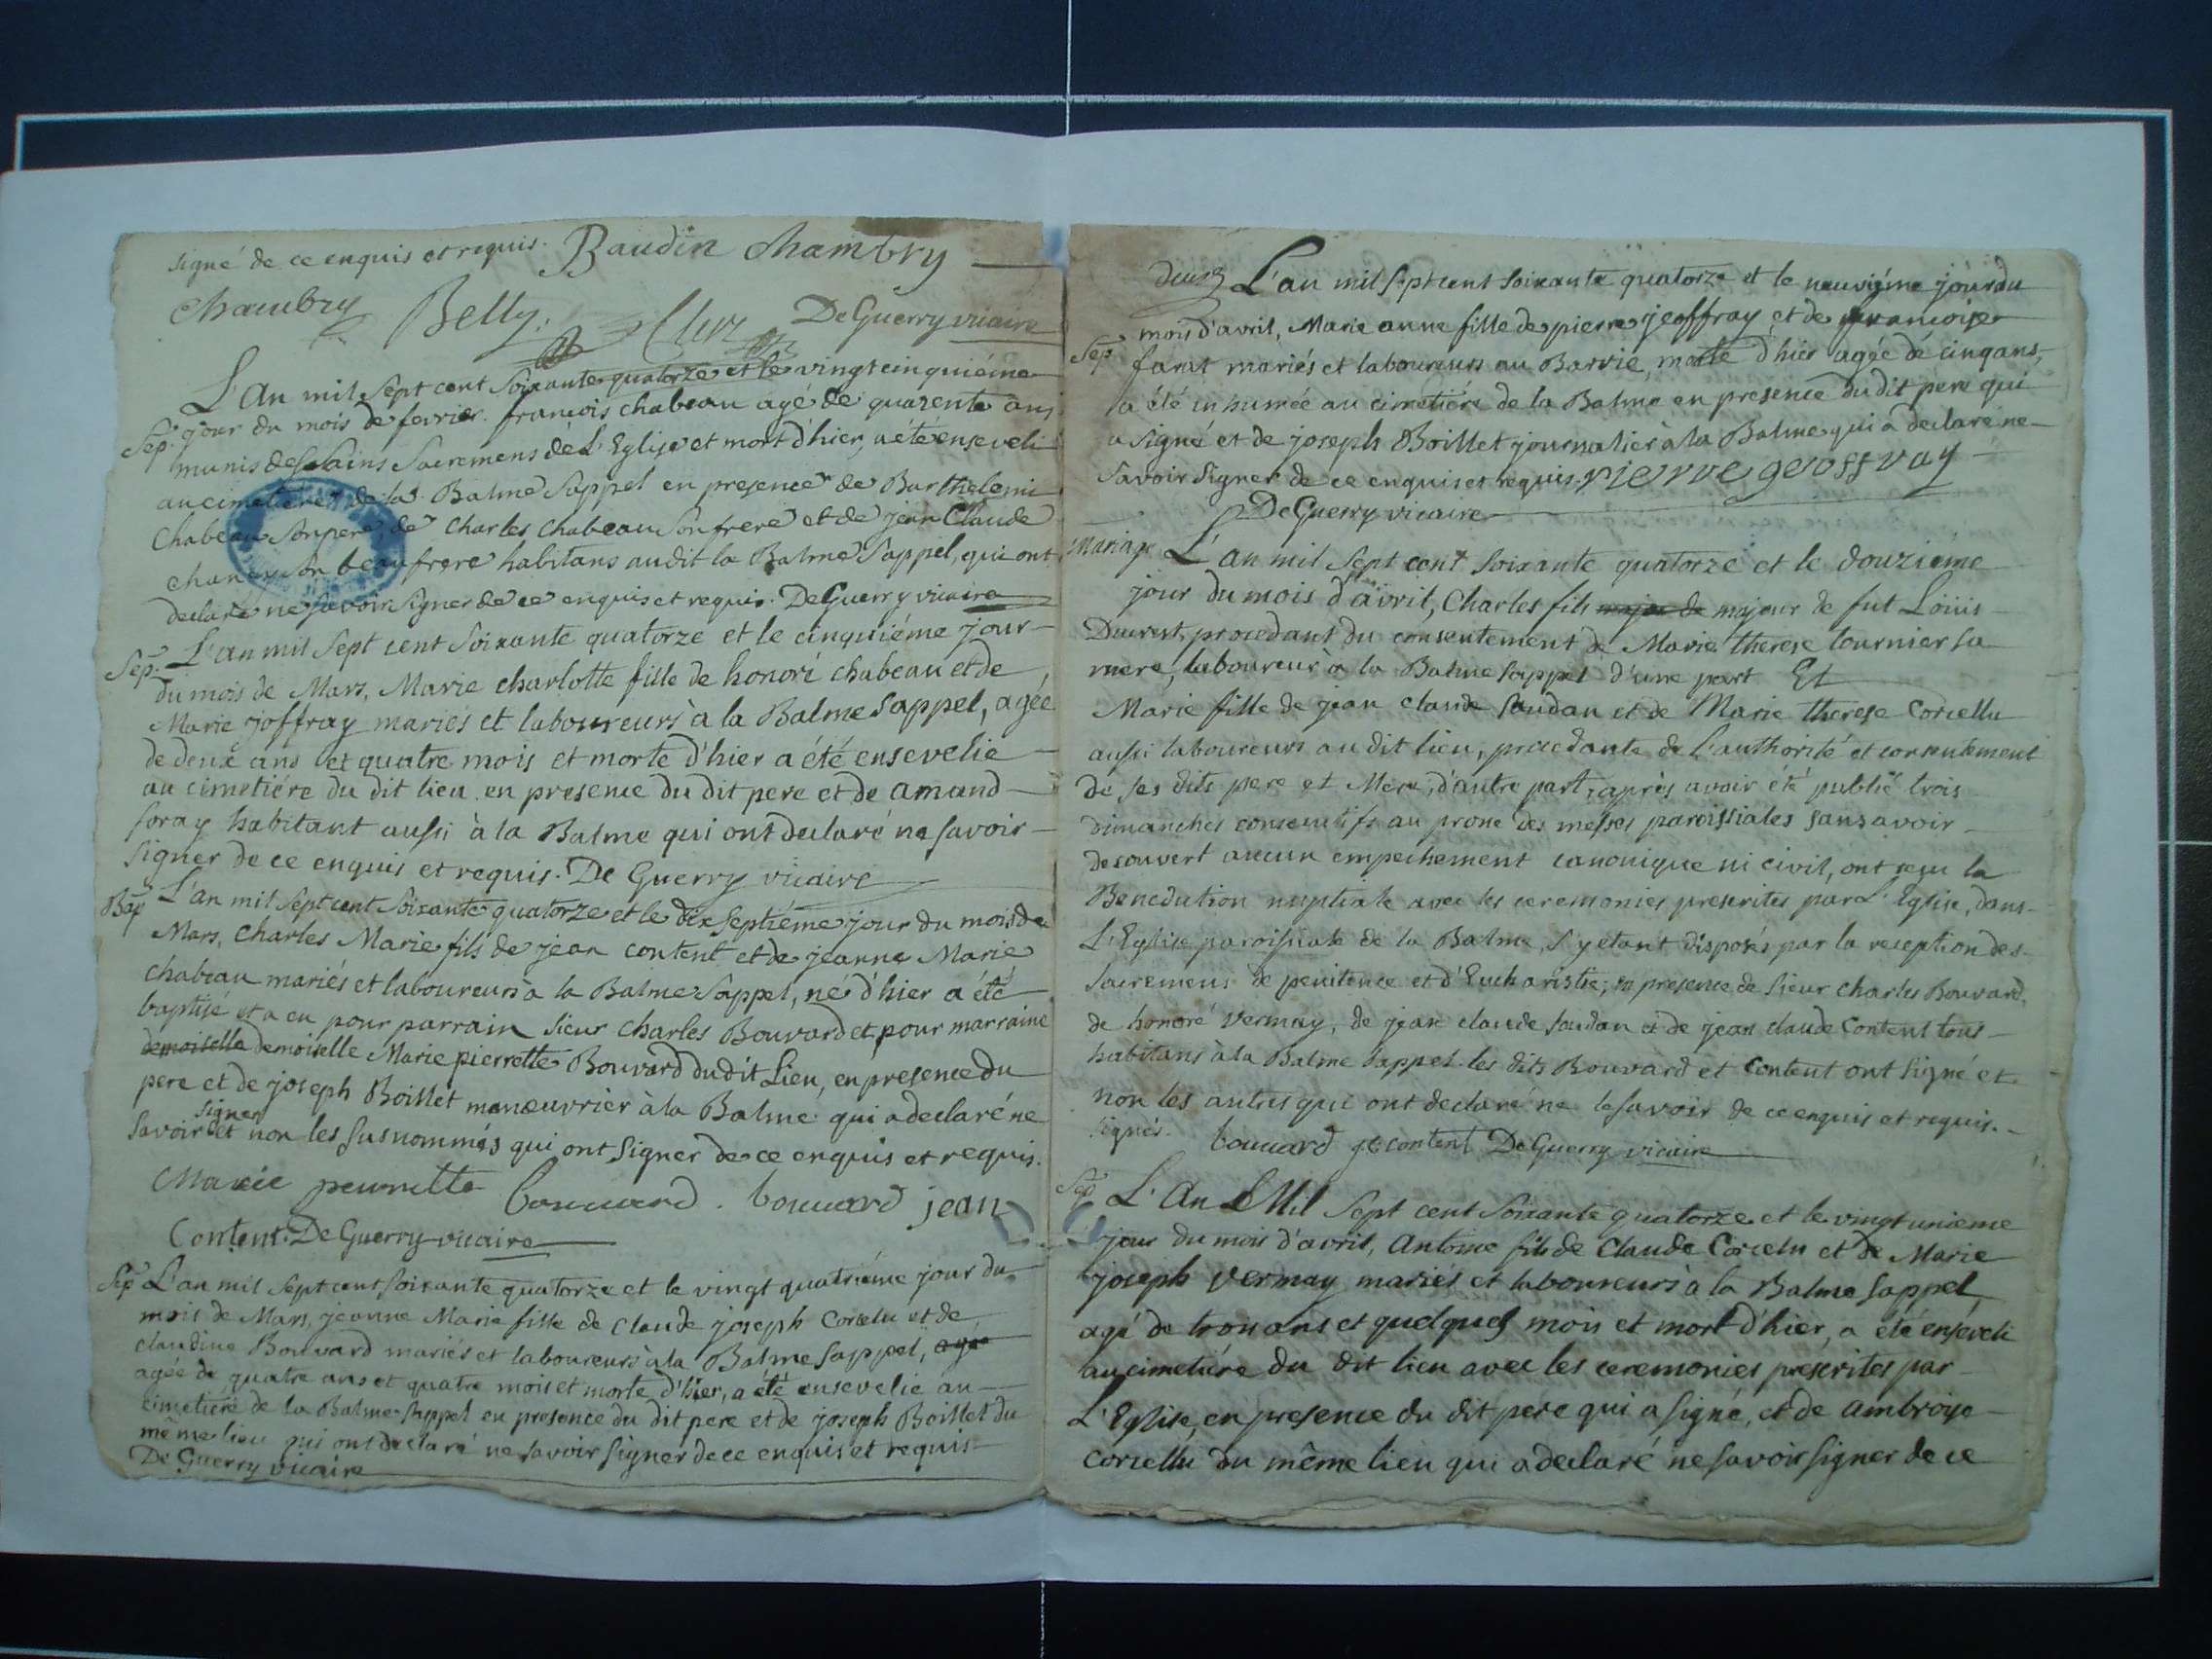 signé de ce enquis et requis. Baudin Chambry
Chambry Belly. Cluz De Guerry vicaire
L'An mil Sept cent Soixante quatorze et le vingt cinquiéme
Sep. jour du mois de fevrier. francois chabeau agé de quarente ans
munis des Sains Sacremens de L'Eglise et mort d'hier, a été enseveli
au cimetiere de la Balme Sappel en presence de Barthelemi
Chabeau Son pere, de Charles Chabeau Son frere et de jean Claude
chaney Son beau frere habitans audit la Balme Sappel, qui ont
declaré ne savoir signer de ce enquis et requis. De Guerry vicaire
Sep. L'an mil Sept cent Soixante quatorze et le cinquiéme jour
du mois de Mars, Marie charlotte fille de honoré chabeau et de
Marie joffray mariés et laboureurs à la Balme Sappel, agée
de deux ans et quatre mois et morte d'hier a été ensevelie
au cimetiére du dit lieu en presence du dit pere et de amand
foray habitant aussi à la Balme qui ont declaré ne savoir
signer de ce enquis et requis. De Guerry vicaire
Bap L'an mil Sept cent Soixante quatorze et le dix Septiéme jour du mois de
Mars, Charles Marie fils de jean content et de jeanne Marie
chabeau mariés et laboureurs a la Balme Sappel, né d'hier a été
baptisé et a eu pour parrain sieur Charles Bouvard et pour marraine
demoiselle demoiselle Marie pierrette Bouvard du dit Lieu, en presence du
pere et de joseph Boillet manœuvrier à la Balme qui a declaré ne
signer
savoir et non les susnommés qui ont signer de ce enquis et requis.
Marie peurette bouuard. bouuard jean
Content. De Guerry vicaire
Sep L'an mil Sept cent Soixante quatorze et le vingt quatriéme jour du
mois de Mars, jeanne Marie fille de Claude joseph Corcelu et de
claudine Bouvard mariés et laboureurs à la Balme Sappel, agé
agée de quatre ans et quatre mois et morte d'hier, a été ensevelie au
cimetiére de la Balme Sappel en presence du dit pere et de joseph Boillet du
même lieu qui ont declaré ne savoir signer de ce enquis et requis
De Guerry vicaire
deux L'an mil Sept cent Soixante quatorze et le neuviéme jour du
mois d'avril, Marie anne fille de pierre jeoffray et de francoise
Sep farat mariés et laboureurs au Barvié, morte d'hier agée de cinq ans,
a été inhumée au cimetiére de la Balme en presence du dit pere qui
a signé et de joseph Boillet journalier à la Balme qui a declaré ne
savoir signer de ce enquis et requis. pierre geoffray
De Guerry vicaire
Mariage L'an mil Sept cent Soixante quatorze et le douziéme
jour du mois d'avril, Charles fils majeur de majeur de fut Loüis
Ducrest, procedant du consentement de Marie therese tournier sa
mere, laboureur à la Balme Sappel d'une part Et
Marie fille de jean claude Saudan et de Marie therese Corcellu
aussi laboureurs au dit lieu, procedante de L'authorité et consentement
de ses dits pere et Mere, d'autre part, après avoir été publié trois
dimanches consecutifs au prone des messes paroissiales sans avoir
decouvert aucun empechement canonique ni civil, ont reçu la
Benediction nuptiale avec les ceremonies prescrites par L'Eglise, dans
L'Eglise paroissiale de la Balme, s'y etant disposés par la reception des
sacremens de penitence et d'Eucharistie; en presence de Sieur Charles Bouvard,
de honoré Vermay, de jean claude Saudan et de jean claude Content tous
habitans à la Balme Sappel. les dits Bouvard et Content ont signé et
non les autres qui ont declaré ne le savoir de ce enquis et requis.
signés. bouuard jc content De Guerry vicaire
Sep L'An Mil Sept cent Soixante quatorze et le vingt unieme
jour du mois d'avril, Antoine fils de Claude Corcelu et de Marie
joseph Vermay mariés et laboureurs à la Balme Sappel,
agé de trois ans et quelques mois et mort d'hier, a été enseveli
au cimetiére du dit lieu avec les ceremonies préscrites par
L'Eglise, en presence du dit pere qui a signé, et de ambroise
Corcellu du même lieu qui a declaré ne savoir signer de ce